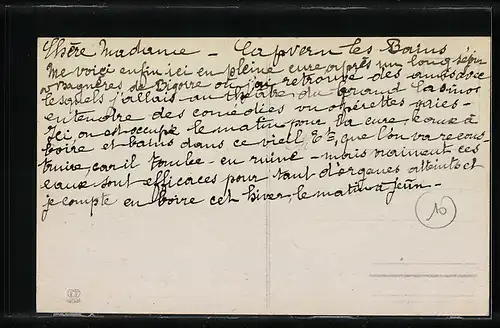 Chère Madame – Capvern les Bains
Me voici enfin ici en pleine cure après un long séjour
à Bagnères de Bigorre où j'ai retrouvé des amis avec
lesquels j'allais au théâtre du Grand Casino
entendre des comédies ou opérettes gaies –
Ici, on est occupé le matin pour la cure, eaux à
boire et bains dans ce vieil Et, que l'on va recons
truire, car il tombe en ruine – mais vraiment ces
eaux sont efficaces pour tant d'organes atteints et
je compte en boire cet hiver, le matin à jeûn –
10